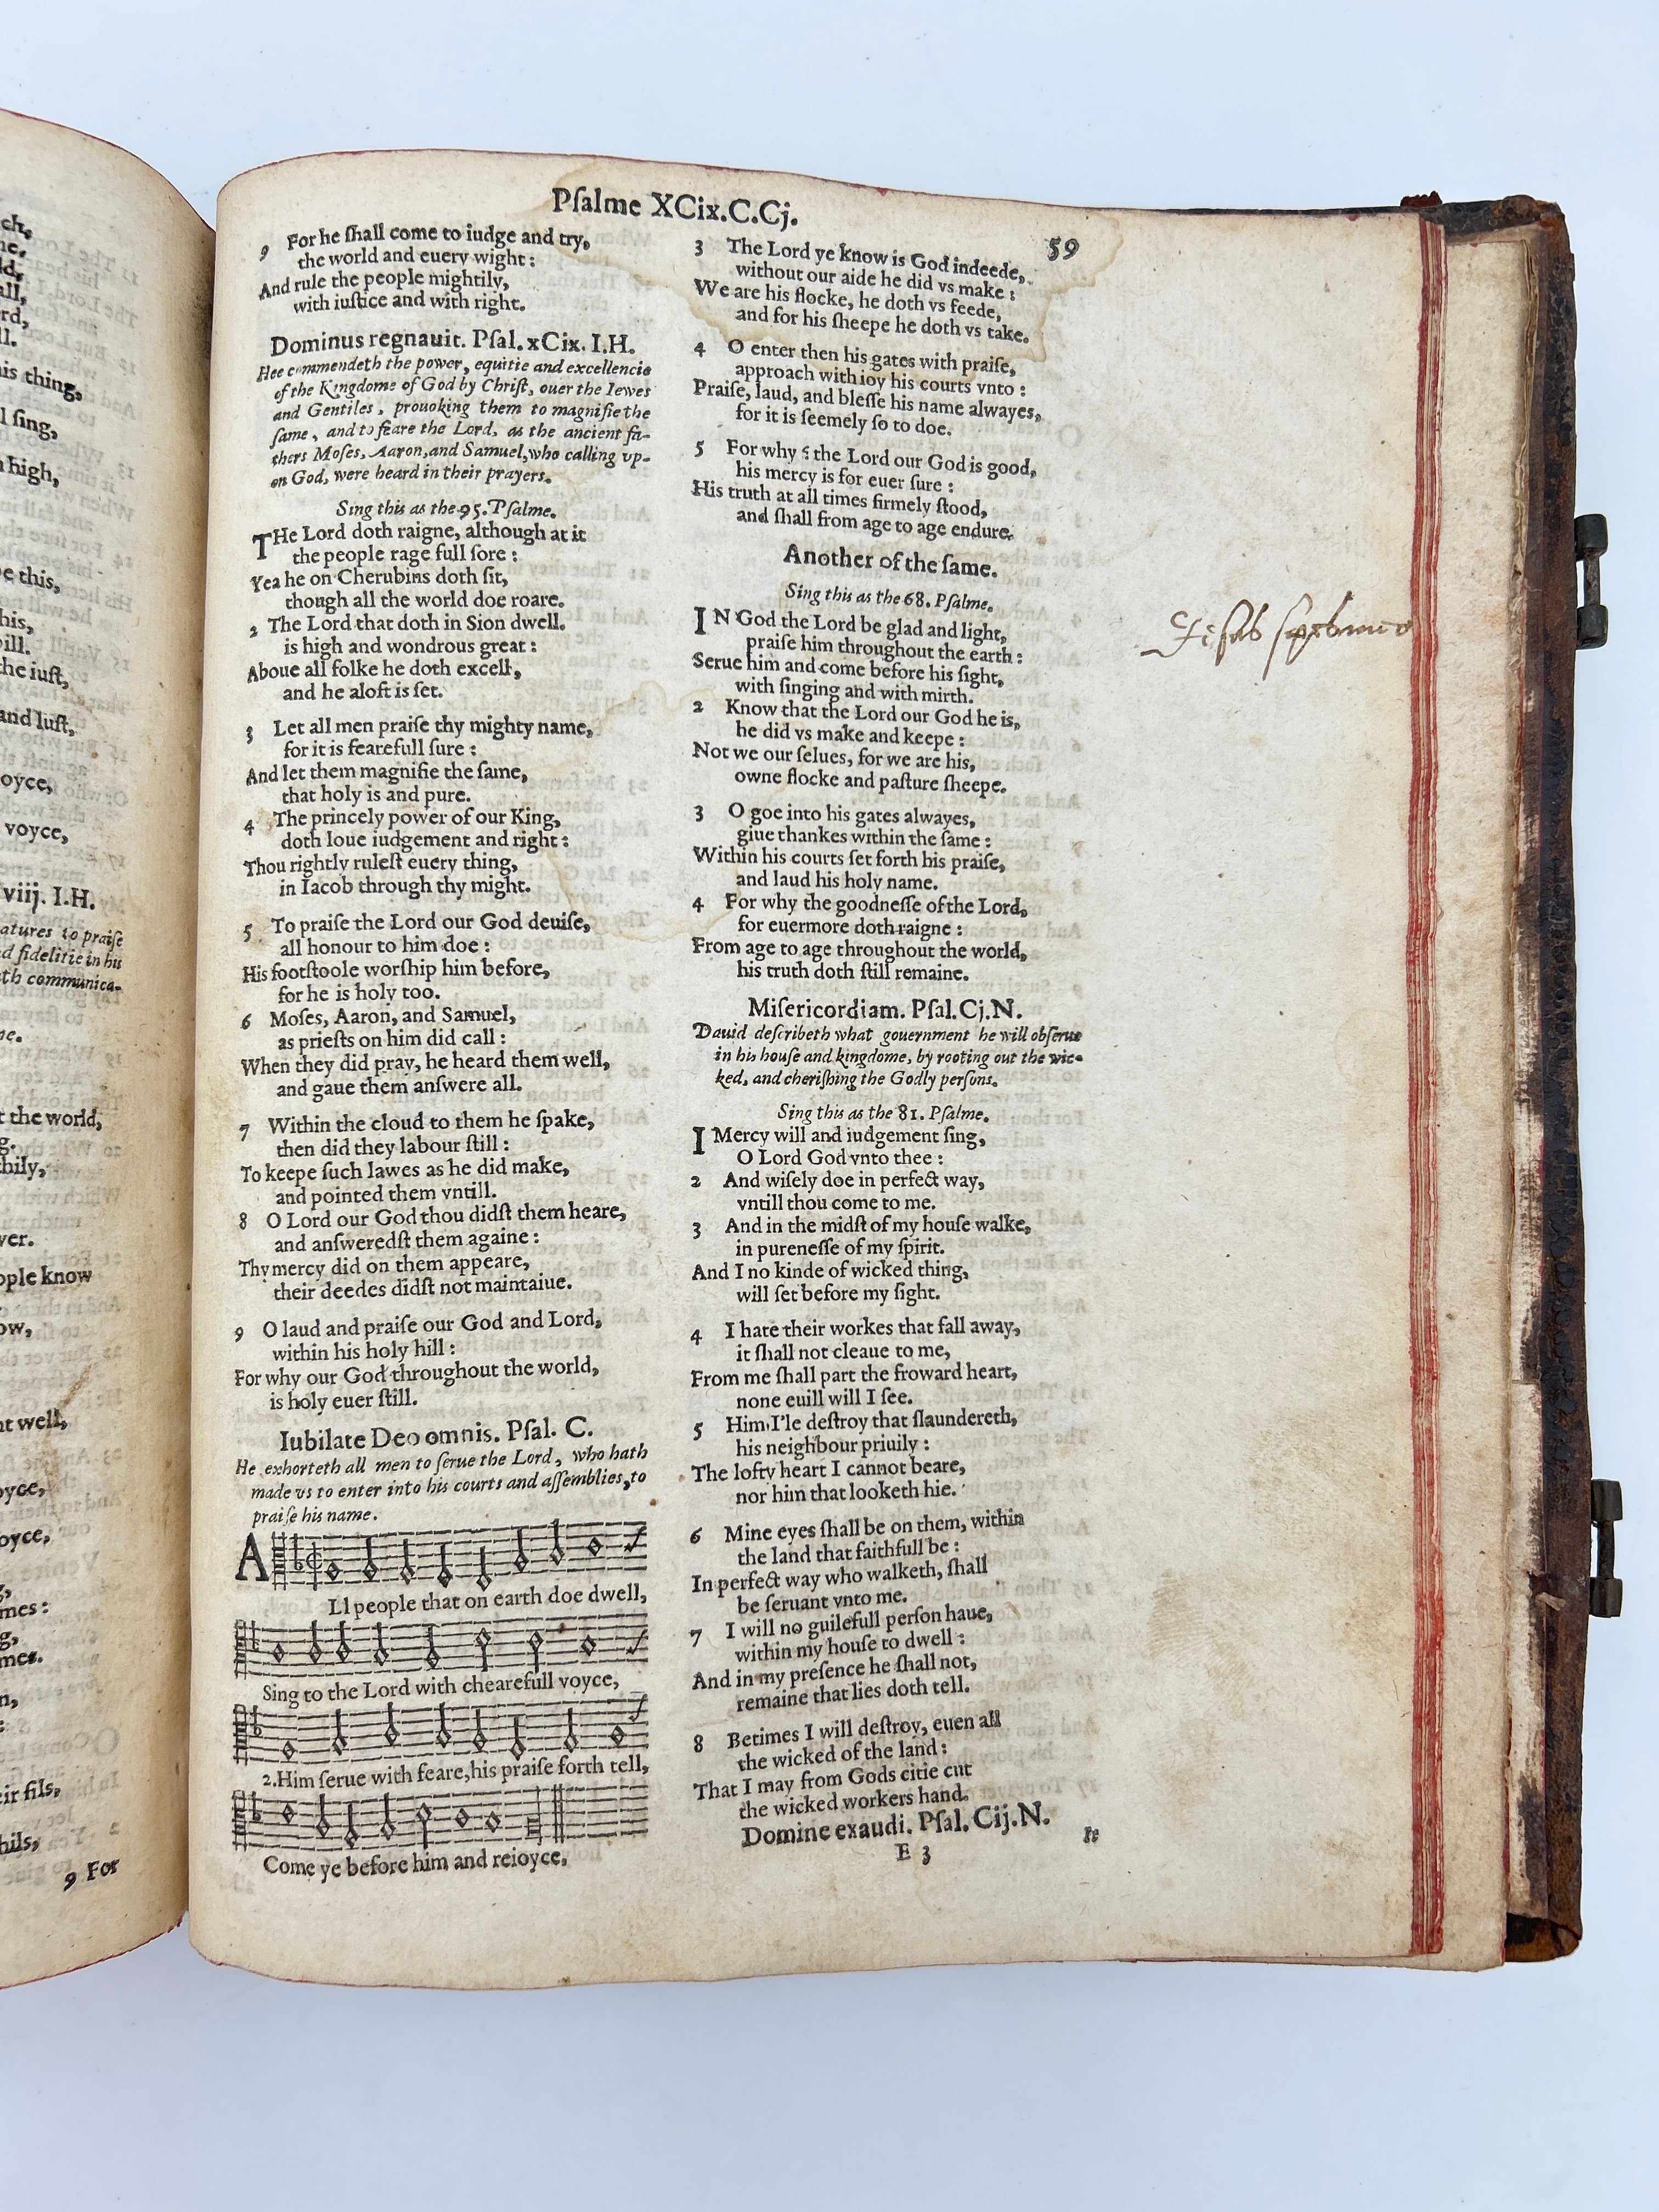 ch,
ne,
ld,
all,
rd,
ll.
his thing,
l ſing,
n high,
be this,
his,
bill.
the iuſt,
and luſt,
oyce,
voyce,
viij. I.H.
atures to praiſe
d fidelitie in his
th communica-
ne.
t the world,
g.
hily,
ver.
ople know
ow,
nt well,
oyce,
oyce,
g,
mes:
g,
mes.
n,
eir fils,
hils,
9 For
Pſalme XCix.C.Cj.
59
9 For he ſhall come to iudge and try,
the world and euery wight:
And rule the people mightily,
with iuſtice and with right.
Dominus regnauit. Pſal. xCix. I.H.
Hee commendeth the power, equitie and excellencie
of the Kingdome of God by Chriſt, ouer the Iewes
and Gentiles, prouoking them to magnifie the
ſame, and to feare the Lord, as the ancient fa-
thers Moſes, Aaron, and Samuel, who calling vp-
on God, were heard in their prayers.
Sing this as the 95. Pſalme.
THe Lord doth raigne, although at it
the people rage full ſore:
Yea he on Cherubins doth ſit,
though all the world doe roare.
2 The Lord that doth in Sion dwell.
is high and wondrous great:
Aboue all folke he doth excell,
and he aloft is ſet.
3 Let all men praiſe thy mighty name,
for it is fearefull ſure:
And let them magnifie the ſame,
that holy is and pure.
4 The princely power of our King,
doth loue iudgement and right:
Thou rightly ruleſt euery thing,
in Iacob through thy might.
5 To praiſe the Lord our God deuiſe,
all honour to him doe:
His footſtoole worſhip him before,
for he is holy too.
6 Moſes, Aaron, and Samuel,
as prieſts on him did call:
When they did pray, he heard them well,
and gaue them anſwere all.
7 Within the cloud to them he ſpake,
then did they labour ſtill:
To keepe ſuch lawes as he did make,
and pointed them vntill.
8 O Lord our God thou didſt them heare,
and anſweredſt them againe:
Thy mercy did on them appeare,
their deedes didſt not maintaiue.
9 O laud and praiſe our God and Lord,
within his holy hill:
For why our God throughout the world,
is holy euer ſtill.
Iubilate Deo omnis. Pſal. C.
He exhorteth all men to ſerue the Lord, who hath
made vs to enter into his courts and aſſemblies, to
praiſe his name.
A
Ll people that on earth doe dwell,
Sing to the Lord with chearefull voyce,
2. Him ſerue with feare, his praiſe forth tell,
Come ye before him and reioyce,
3 The Lord ye know is God indeede,
without our aide he did vs make:
We are his flocke, he doth vs feede,
and for his ſheepe he doth vs take.
4 O enter then his gates with praiſe,
approach with ioy his courts vnto:
Praiſe, laud, and bleſſe his name alwayes,
for it is ſeemely ſo to doe.
5 For why? the Lord our God is good,
his mercy is for euer ſure:
His truth at all times firmely ſtood,
and ſhall from age to age endure.
Another of the ſame.
Sing this as the 68. Pſalme.
IN God the Lord be glad and light,
praiſe him throughout the earth:
Serue him and come before his ſight,
with ſinging and with mirth.
2 Know that the Lord our God he is,
he did vs make and keepe:
Not we our ſelues, for we are his,
owne flocke and paſture ſheepe.
3 O goe into his gates alwayes,
giue thankes within the ſame:
Within his courts ſet forth his praiſe,
and laud his holy name.
4 For why the goodneſſe of the Lord,
for euermore doth raigne:
From age to age throughout the world,
his truth doth ſtill remaine.
Miſericordiam. Pſal. Cj. N.
Dauid deſcribeth what gouernment he will obſerue
in his houſe and kingdome, by rooting out the wic-
ked, and cheriſhing the Godly perſons.
Sing this as the 81. Pſalme.
I Mercy will and iudgement ſing,
O Lord God vnto thee:
2 And wiſely doe in perfect way,
vntill thou come to me.
3 And in the midſt of my houſe walke,
in pureneſſe of my ſpirit.
And I no kinde of wicked thing,
will ſet before my ſight.
4 I hate their workes that fall away,
it ſhall not cleaue to me,
From me ſhall part the froward heart,
none euill will I ſee.
5 Him I'le deſtroy that ſlaundereth,
his neighbour priuily:
The lofty heart I cannot beare,
nor him that looketh hie.
6 Mine eyes ſhall be on them, within
the land that faithfull be:
In perfect way who walketh, ſhall
be ſeruant vnto me.
7 I will no guilefull perſon haue,
within my houſe to dwell:
And in my preſence he ſhall not,
remaine that lies doth tell.
8 Betimes I will deſtroy, euen all
the wicked of the land:
That I may from Gods citie cut
the wicked workers hand.
Domine exaudi. Pſal. Cij. N.
E 3